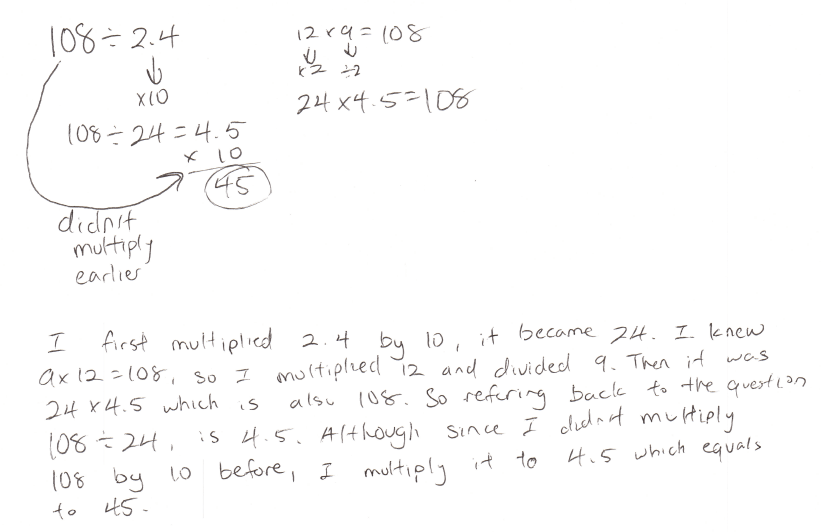 108 ÷ 2.4
↓
x10
108 ÷ 24 = 4.5
x 10
45
didn't
multiply
earlier
12 x 9 = 108
↓ ↓
x2 ÷2
24 x 4.5 = 108
I first multiplied 2.4 by 10, it became 24. I knew
9 x 12 = 108, so I multiplied 12 and divided 9. Then it was
24 x 4.5 which is also 108. So refering back to the question
108 ÷ 24, is 4.5. Although since I didn't multiply
108 by 10 before, I multiply it to 4.5 which equals
to 45.